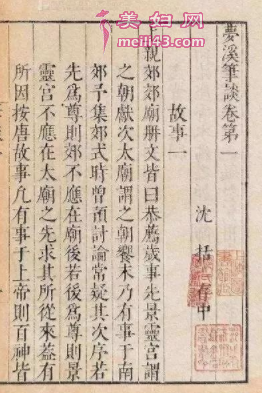 美妇网
meili43.com
夢溪筆談卷第一
沈 括 存中
故事一
上親郊郊廟册文皆曰恭薦歲事先景靈宮謂
之朝獻次太廟謂之朝饗末乃有事于南
郊予集郊式時曾預討論常疑其次序若
先爲尊則郊不應在廟後若後爲尊則景
靈宮不應在太廟之先求其所從來蓋有
所因按唐故事凡有事于上帝則百神皆